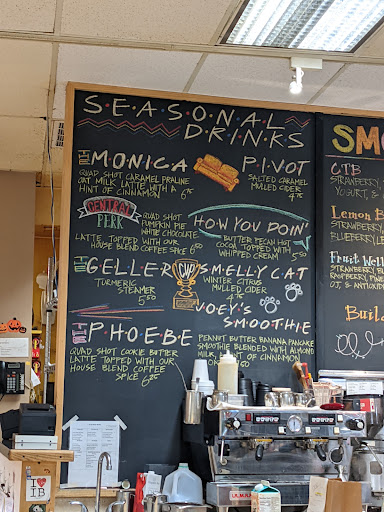 SEASONAL
DRINKS
THE MONICA
QUAD SHOT CARAMEL PRALINE
OAT MILK LATTE WITH A
HINT OF CINNAMON
PIVOT
SALTED CARAMEL
MULLED CIDER
4.75
CENTRAL
PERK
QUAD SHOT
PUMPKIN PIE
WHITE CHOCOLATE
LATTE TOPPED WITH OUR
HOUSE BLEND COFFEE SPICE 6.50
HOW YOU DOIN'
BUTTER PECAN HOT
COCOA TOPPED WITH
WHIPPED CREAM 5.50
THE GELLER CUP
TURMERIC
STEAMER
5.50
SMELLY CAT
WINTER CITRUS
MULLED CIDER
4.75
THE PHOEBE
QUAD SHOT COOKIE BUTTER
LATTE TOPPED WITH OUR
HOUSE BLEND COFFEE
SPICE 6.25
JOEY'S
SMOOTHIE
PEANUT BUTTER BANANA PANCAKE
SMOOTHIE BLENDED WITH ALMOND
MILK HINT OF CINNAMON
SMO
CTB
STRAWBERRY,
YOGURT, &
Lemon B
STRAWBERRY,
BLUEBERRY, L
Fruit Well
STRAWBERRY, B
RASPBERRY, PIN
OJ, & ANTIOXID
Buil
I ♥
IB